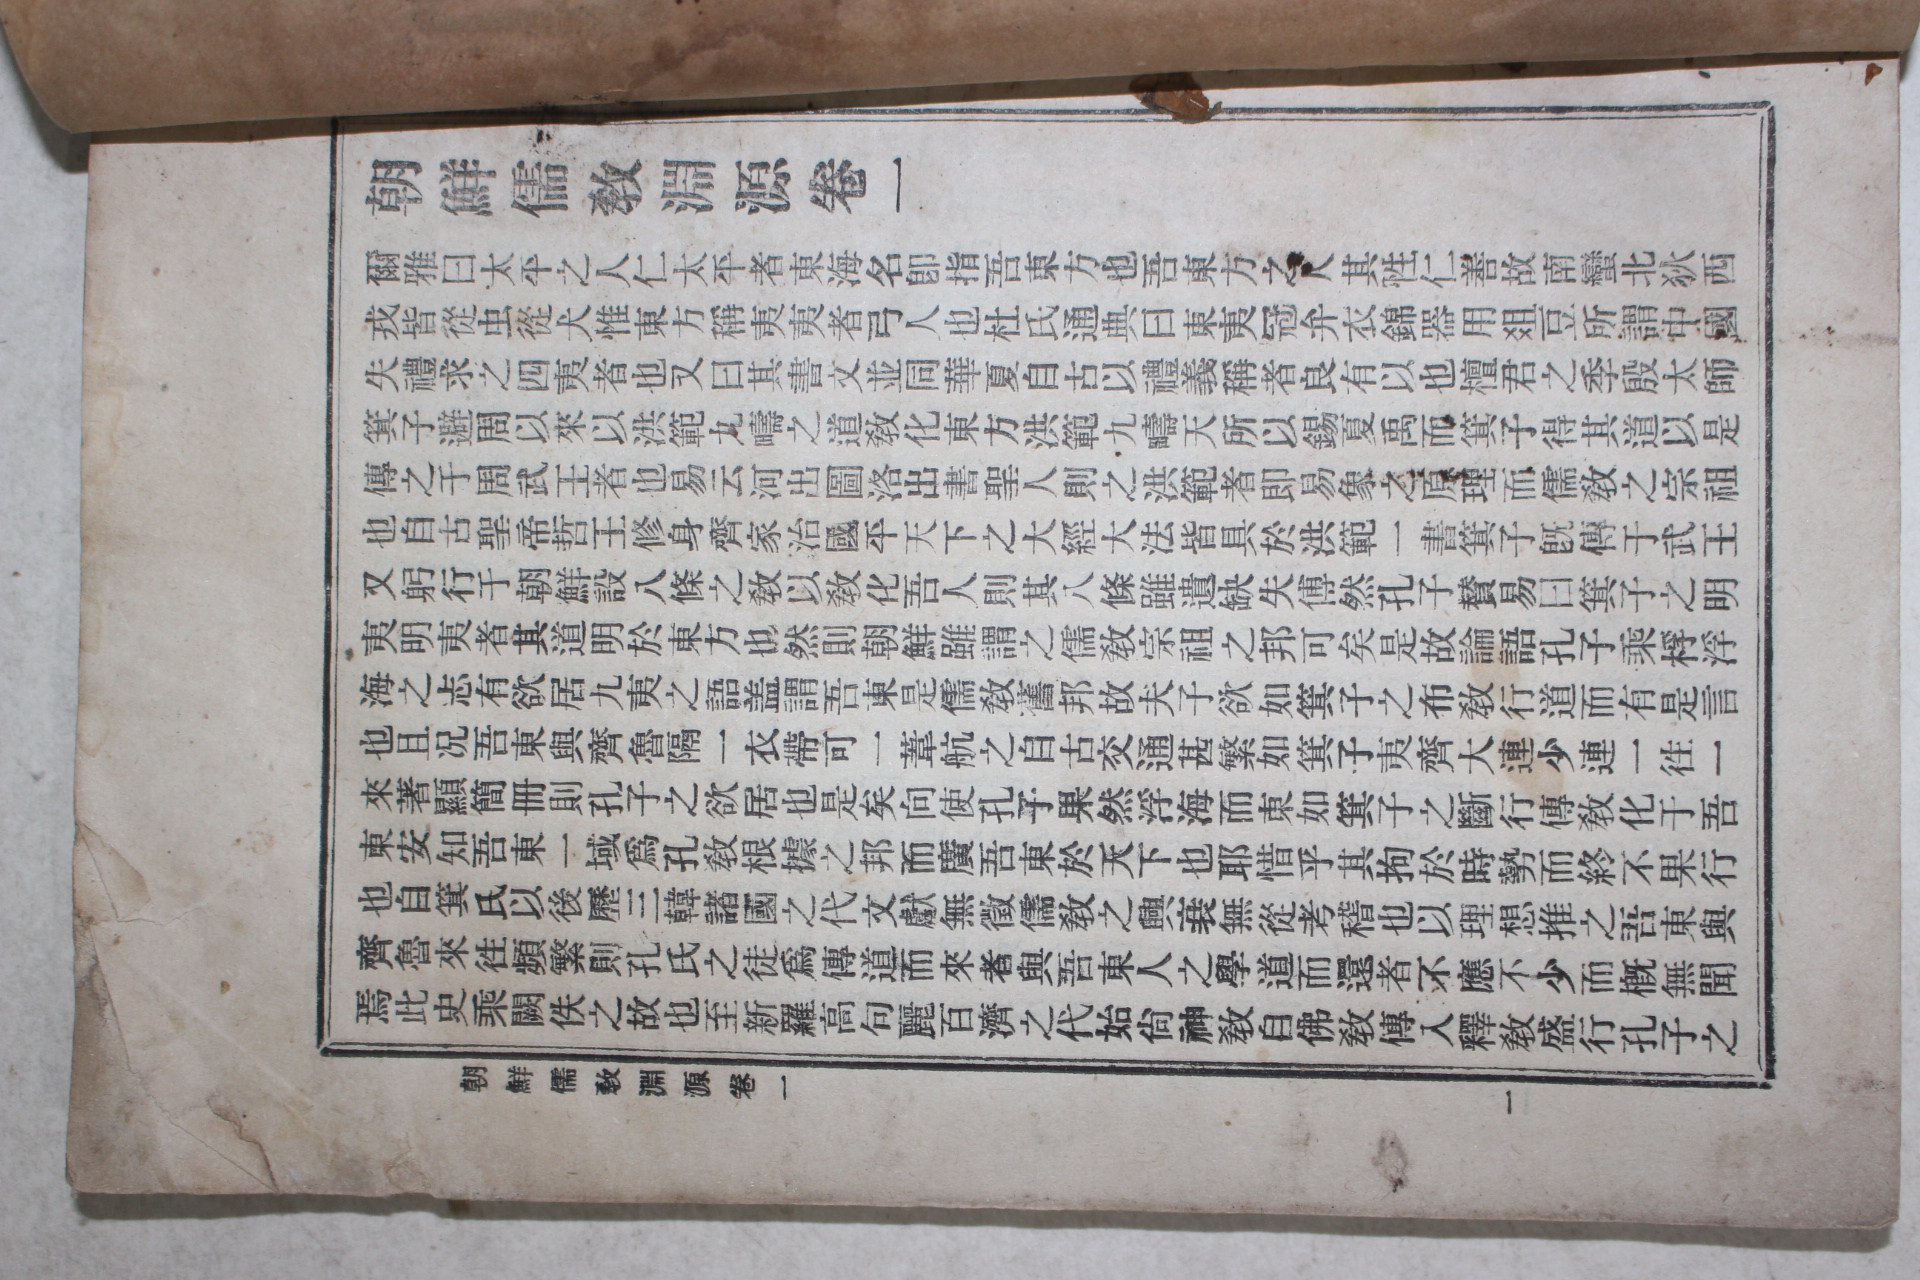 朝鮮儒敎淵源卷一
爾雅曰太平之人仁太平者東海名卽指吾東方也吾東方之人其性仁善故南蠻北狄西
戎皆從虫從犬惟東方稱夷夷者弓人也杜氏通典曰東夷冠弁衣錦器用俎豆所謂中國
失禮求之四夷者也又曰其書文並同華夏自古以禮義稱者良有以也檀君之季殷太師
箕子避周以來以洪範九疇之道敎化東方洪範九疇天所以錫夏禹而箕子得其道以是
傳之于周武王者也易云河出圖洛出書聖人則之洪範者卽易象之原理而儒敎之宗祖
也自古聖帝哲王修身齊家治國平天下之大經大法皆具於洪範一書箕子旣傳于武王
又躬行于朝鮮設八條之敎以敎化吾人則其八條雖遺缺失傳然孔子贊易曰箕子之明
夷明夷者其道明於東方也然則朝鮮雖謂之儒敎宗祖之邦可矣是故論語孔子乘桴浮
海之志有欲居九夷之語盖謂吾東是儒敎舊邦故夫子欲如箕子之布敎行道而有是言
也且况吾東與齊魯隔一衣帶可一葦航之自古交通甚繁如箕子夷齊大連少連一往一
來著顯簡冊則孔子之欲居也是矣向使孔子果然浮海而東如箕子之斷行傳敎化于吾
東安知吾東一域爲孔敎根據之邦而廣吾東於天下也耶惜乎其拘於時勢而終不果行
也自箕氏以後歷三韓諸國之代文獻無徵儒敎之興衰無從考稽也以理想推之吾東與
齊魯來往頻繁則孔氏之徒爲傳道而來者與吾東人之學道而還者不應不少而槪無聞
焉此史乘闕佚之故也至新羅高句麗百濟之代始尙神敎自佛敎傳入釋敎盛行孔子之
朝鮮儒敎淵源卷一
一